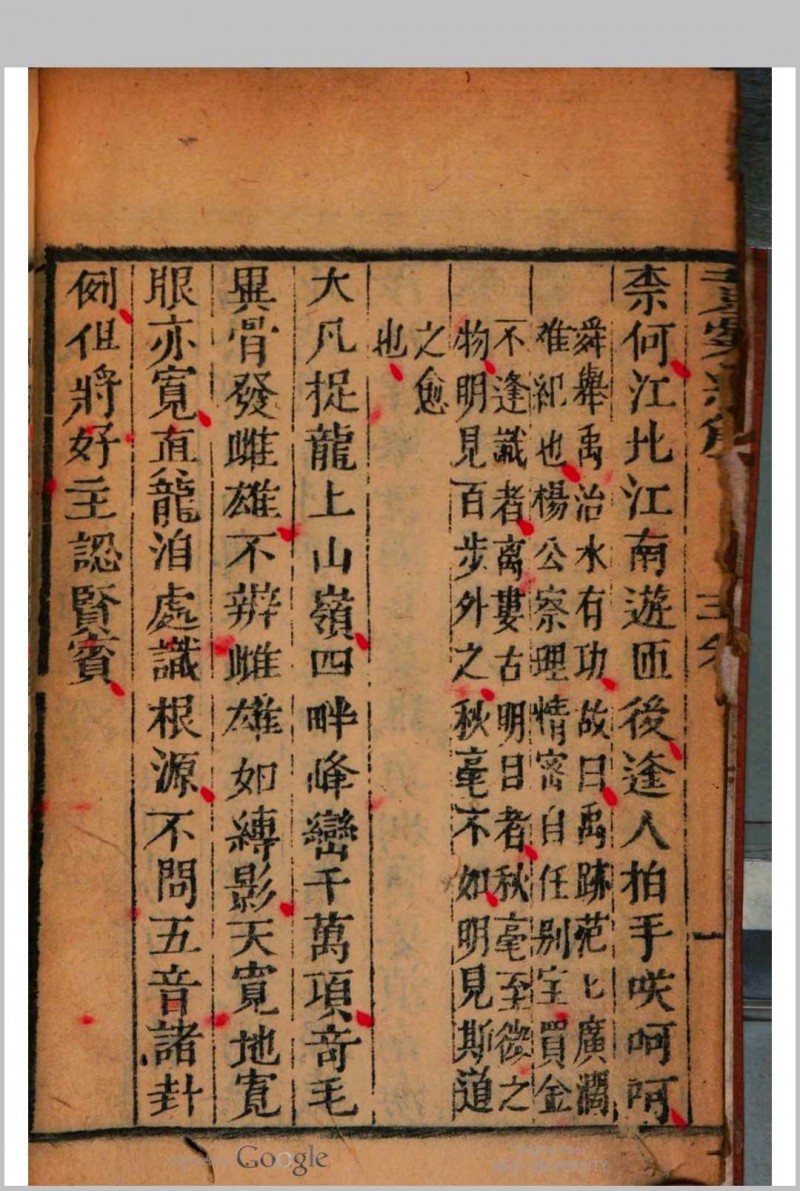 柰何江北江南遊匝後逢人拍手咲呵呵
舜舉禹治水有功故曰禹跡茫〻廣濶
难紀也楊公察理情宻自任别宝買金
不逢識者离婁古明目者秋毫至微之
物明見百步外之秋毫不如明見斯道
之愈
也
大凡捉龍上山嶺四畔峰巒千萬項竒毛
異骨發雌雄不辨雌雄如縛影天寛地寛
眼亦寛直龍泊處識根源不問五音諸卦
例但將好主認賢賓
Google